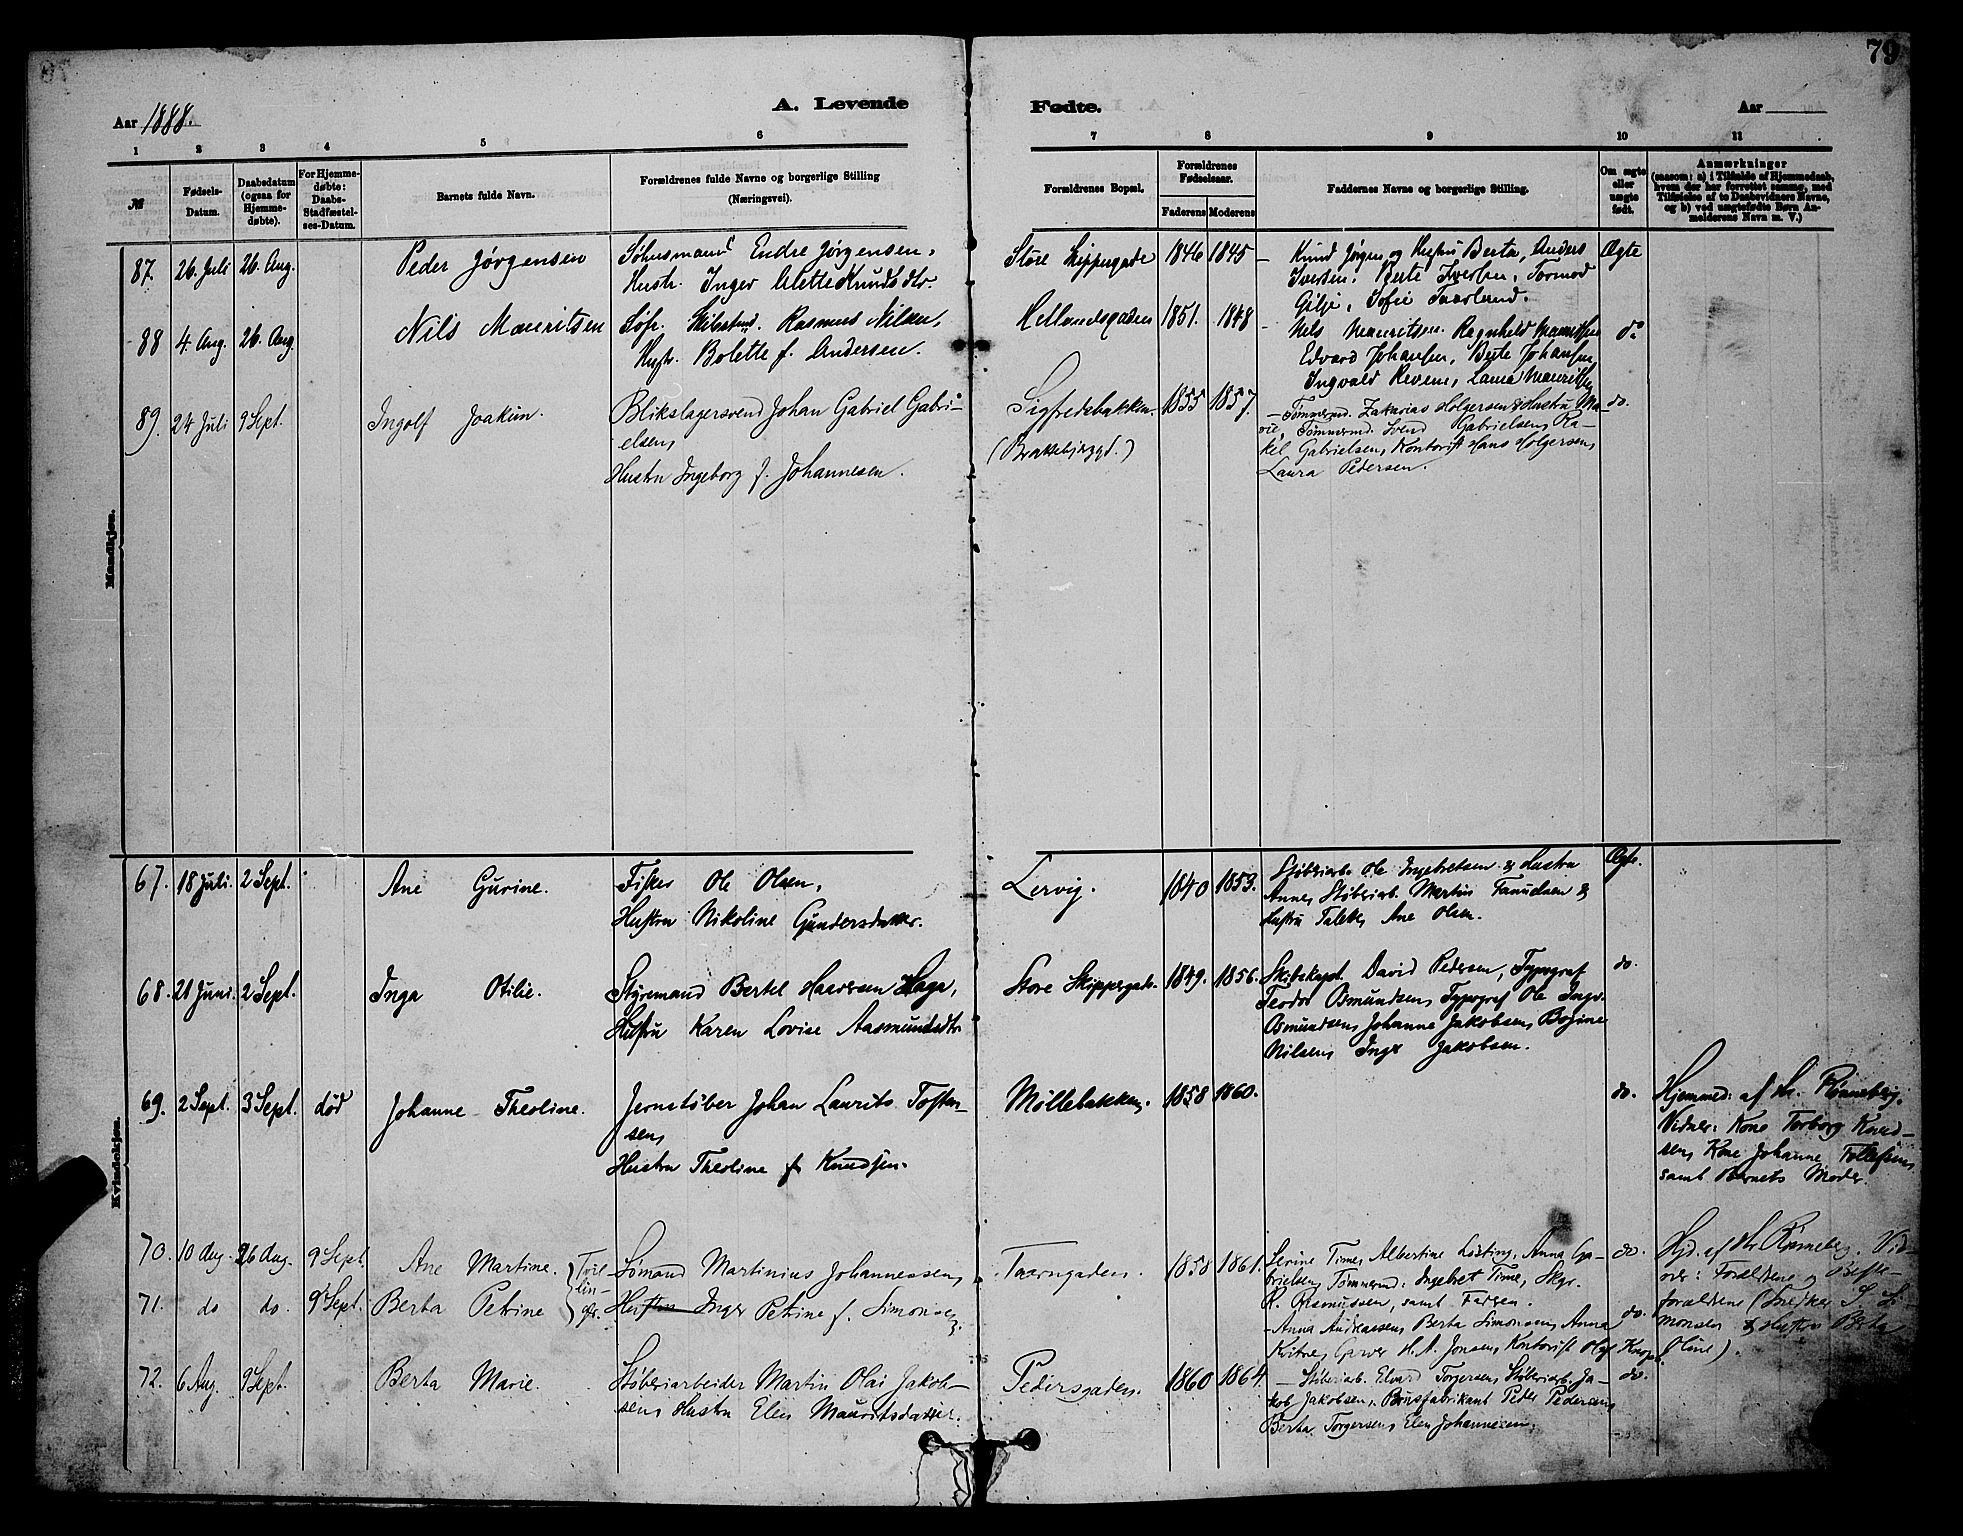 79
A. Levende Fødte.
Aar 1888. Aar
1 2 3 4 5 6 7 8 9 10 11
№ Fødsels-Datum. Daabsdatum (ogsaa for Hjemmedøbte). For Hjemmedøbte: Daabs-Stadfæstelses-Datum. Barnets fulde Navn. Forældrenes fulde Navne og borgerlige Stilling (Næringsvei). Forældrenes Bopæl. Forældrenes Fødselsaar. Faderens Moderens Faddernes Navne og borgerlige Stilling. Om ægte eller uægte født. Anmærkninger (saasom: a) i Tilfælde af Hjemmedaab, hvem der har forrettet samme, med Tilføielse af to Daabsvidners Navne, og b) ved uægtefødte Børn Anmelderens Navn m. V.)
Mandkjøn.
87. 26. Juli 26. Aug. Peder Jørgensen Endre Jørgensen, Store Skippergade 1846 1845 Knud Jørgen og Hustru Berta, Anders Ægte
Hustr. Inger Knudsdtr. Iversen, Berte Iversen, Tormod
Gilje, Sofie Taarland.
88 4. Aug. 26. Aug. Nils Mauritsen Rasmus Nilsen, Hetlandsgaden 1851. 1848 Nels Mauritsen. Ragnhild Mauritsen do
Hustr. Bolette f. Andersen. Edvard Johansen, Berte Johansen,
Ingvald Revem, Laura Mauritsen
89. 24 Juli 9 Sept. Ingolf Joakim. Blikslagersvend Johan Gabriel Gabri- Sigfredsbakken. 1855 1857. Tømmermd. Zakarias Holgersen & Hustru Ma- do.
elsen, (Brakkebyggd.) rie, Tømmermd. Svend Gabrielsen, Ra-
Hustru Ingeborg f. Johannesen. kel Gabrielsen, Kontorist Hans Holgersen,
Laura Pedersen.
Kvindekjøn.
67. 18 Juli. 2 Sept. Ane Gurine. Fisker Ole Olsen, Lervig. 1840 1853. Støberiarb. Ole Ingebretsen & Hustru Ægte.
Hustru Nikoline Gundersdatter. Anne, Støberiarb. Martin &
Hustru Ane Olsen.
68. 21 Juni. 2 Sept. Inga Otilie. Styrmand Bertel Haaversen Haga, Store Skippergade. 1849. 1856. Skibskapt. David Pedersen, Typograf do.
Hustru Karen Lovise Aasmundsdtr Teodor Osmundsen, Typograf Ole Ingv.
Osmundsen, Johanne Jakobsen, Bogine
Nilsen, Inger Jakobsen.
69. 2 Sept. 3 Sept. død Johanne Theoline. Jernstøber Johan Laurits Tosten- Møllebakken. 1858 1860. do. Hjemmed: af Hr. Rønneberg.
sen, Vidner: Kone Torborg Knud-
Hustru Theoline f. Knudsen. sen, Kone Johanne Tollefsen,
samt Barnets Moder.
70. 10 Aug. 26 Aug. 9 Sept. Ane Martine. Sømand Martinius Johannessen, Taarngaden. 1858 1861. Serine Time, Albertine Løsting, Anna Ga- do. Hjd. af Hr Rønneberg. Vid-
brielsen, Tømmermd: Ingebret Time, ner: Forældrene og Beste-
71. do do. 9 Sept. Berta Petrine Tvil-lin-ger. Hustru Inger Petrine f. Simonsen. R. Rasmussen, samt Faderen. do. forældrene (Snedker S. Si-
Anna Andreassen, Berta Simonsen, Anna monsen & Hustru Berta
Garver H. A. Jonsen, Kontorist Oluf Oline).
72. 6 Aug. 9 Sept. Berta Marie. Støberiarbeider Martin Olai Jakob- Pedersgaden. 1860 1864. Støberiarb. Edvard Torgersen, Støberiarb. Ja- do.
sen, Hustru Elen Mauritsdatter. kob Jakobsen, Brusfabrikant Peder Pedersen,
Berta Torgersen, Elen Johannesen.